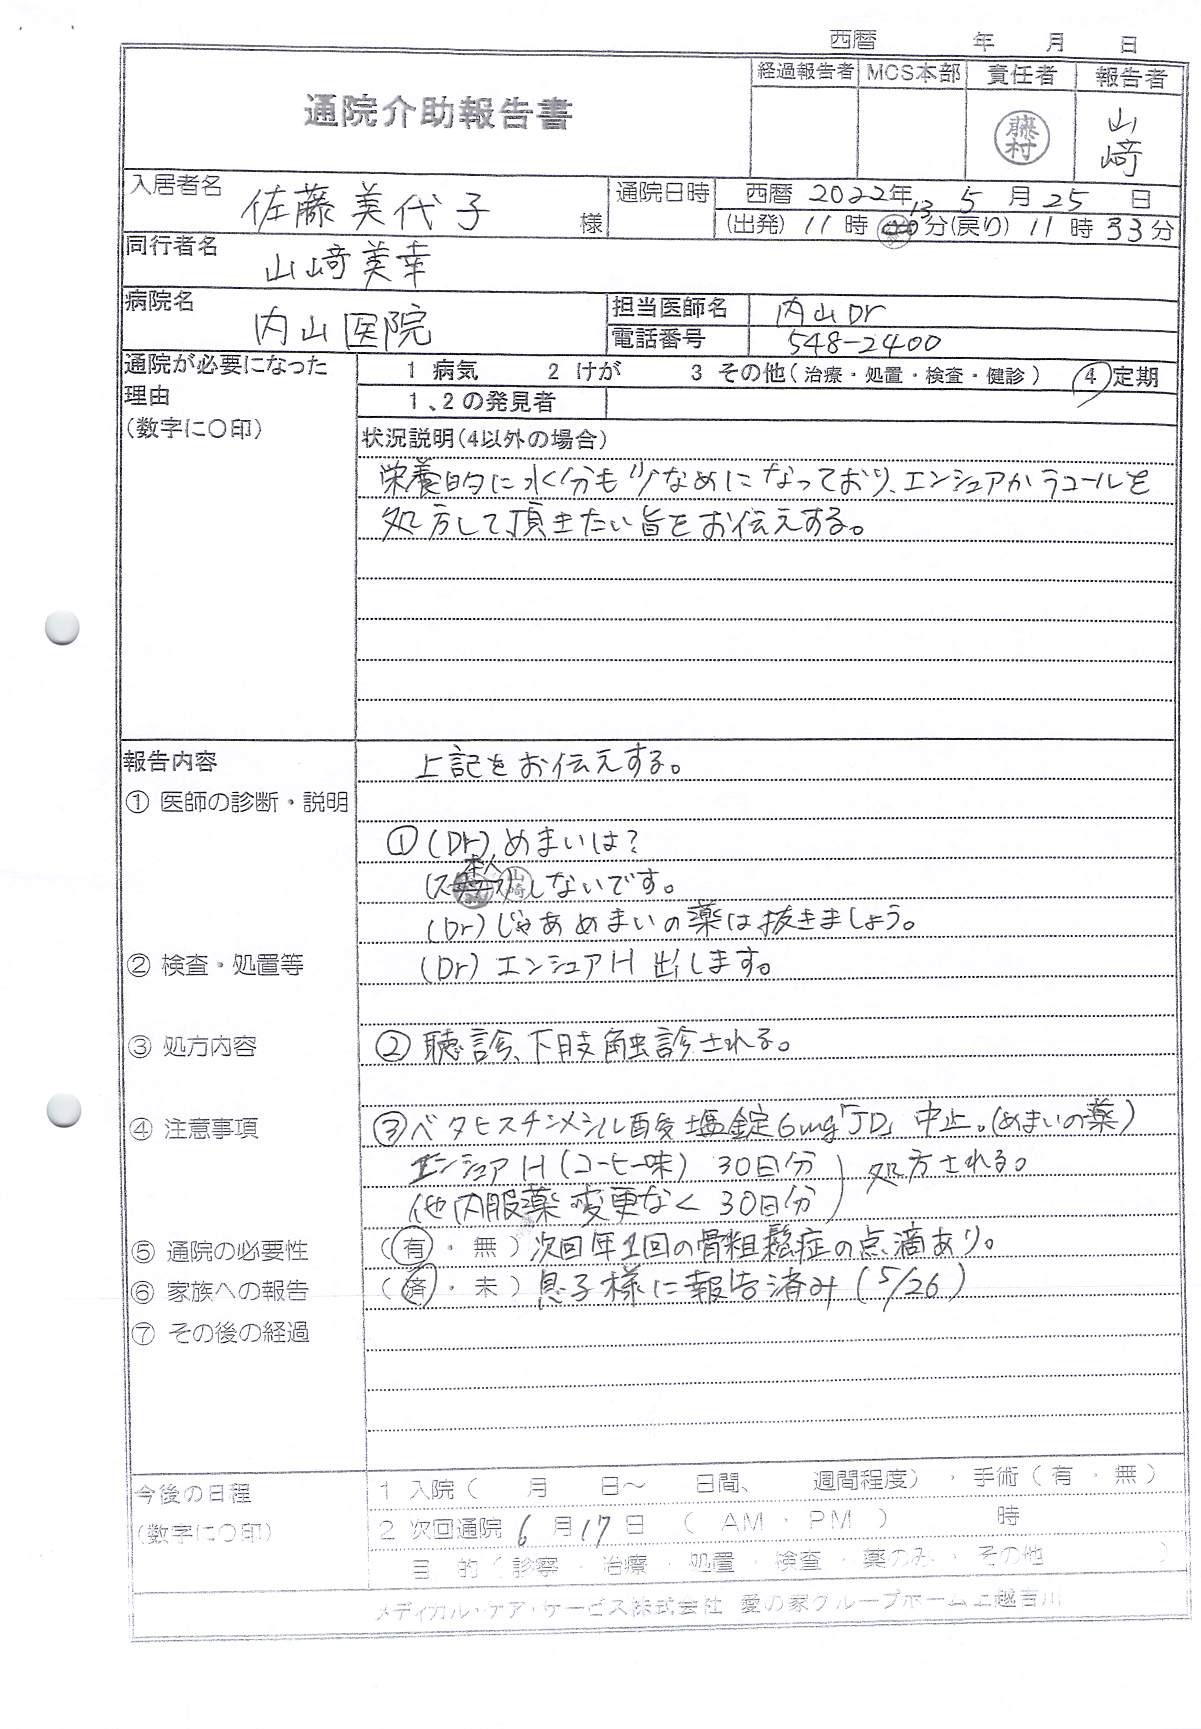 西暦 年 月 日
通院介助報告書
経過報告者 MCS本部 責任者 報告者
藤村 山﨑
入居者名 佐藤美代子 様
通院日時 西暦 2022年 5月 25日
(出発) 11時 13分 (戻り) 11時 33分
同行者名 山﨑美幸
病院名 内山医院
担当医師名 内山Dr
電話番号 548-2400
通院が必要になった理由
(数字に○印)
1 病気 2 けが 3 その他(治療・処置・検査・健診) ④定期
1、2の発見者
状況説明(4以外の場合)
栄養的に水分も少なめになっており、エンシュアかラコールを
処方して頂きたい旨をお伝えする。
報告内容
上記をお伝えする。
① 医師の診断・説明
①(Dr)めまいは?
(本人)山﨑 しないです。
(Dr)じゃあめまいの薬は抜きましょう。
② 検査・処置等
(Dr)エンシュアH出します。
③ 処方内容
②聴診、下肢触診される。
④ 注意事項
③ベタヒスチンメシル酸塩錠6mg「JD」中止。(めまいの薬)
エンシュアH(コーヒー味) 30日分
他内服薬変更なく 30日分) 処方される。
⑤ 通院の必要性 (有・無)次回年1回の骨粗鬆症の点滴あり。
⑥ 家族への報告 (済・未)息子様に報告済み(5/26)
⑦ その後の経過
今後の日程
(数字に○印)
1 入院( 月 日〜 日間、 週間程度)・手術(有・無)
2 次回通院 6月17日 (AM・PM) 時
目 的(診察・治療・処置・検査・薬のみ・その他 )
メディカル・ケア・サービス株式会社 愛の家グループホーム上越吉川